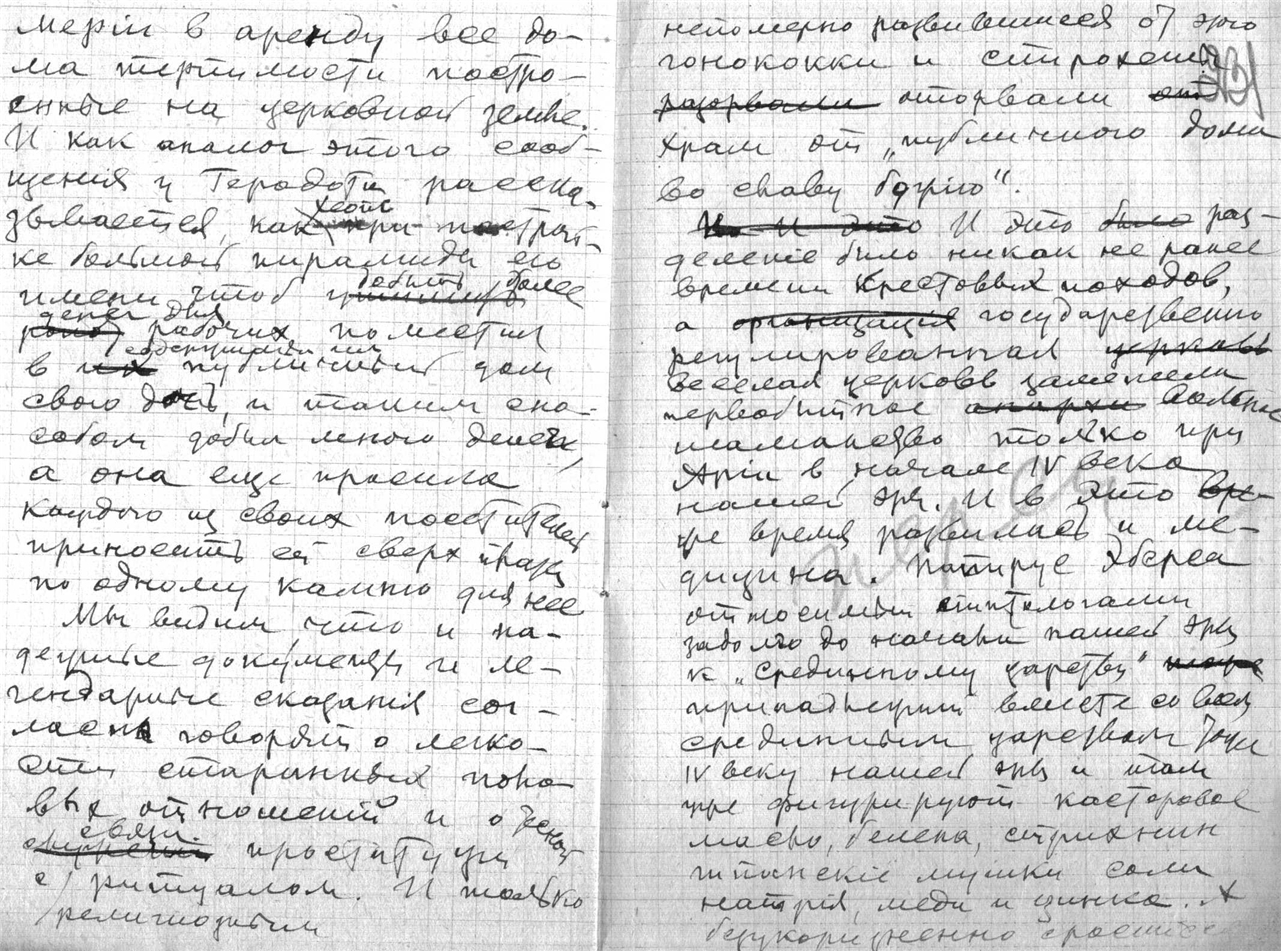 мерiи в аренду все до-
ма терпимости постро-
енные на церковной земле.
И как аналог этого сооб-
щения у Геродота расска-
зывается, как Хеопс при построй-
ке большой пирамиды его
имени чтоб добыть более
денег для рабочих поместил
в публичный дом
свою дочь, и таким спо-
собом добыл много денег,
а она еще просила
каждого из своих посетителей
приносить ей сверх платы
по одному камню для нее
Мы видим, что и на-
дежные документы и ле-
гендарные сказанiя сог-
ласно говорят о легко-
сти старинных поло-
вых отношений и о тесной
связи проституции
с религиозным ритуалом. И только
непомерно развившиеся от этого
гонококки и спирохеты
разорвали оторвали от
храм от „публичного дома
во славу божiю“.
И это было раз-
деленiе было никак не ранее
времени Крестовых походов,
а организацiя государственно
регулированная церковь
веселая церковь заменила
первобытное вольное
шаманство только при
Арiи в начале IV века
нашей эры. И в это
же время развилась и ме-
дицина. Папирус Эберса
относимый египтологами
задолго до начала нашей эры
к „Срединному царству“
принадлежит вместе со всем
срединным царством тоже
IV веку нашей эры и там
же фигурируют касторовое
масло, белена, стрихнин
шпанскiе мушки соли
натрiя, меди и цинка. А
безукоризненно